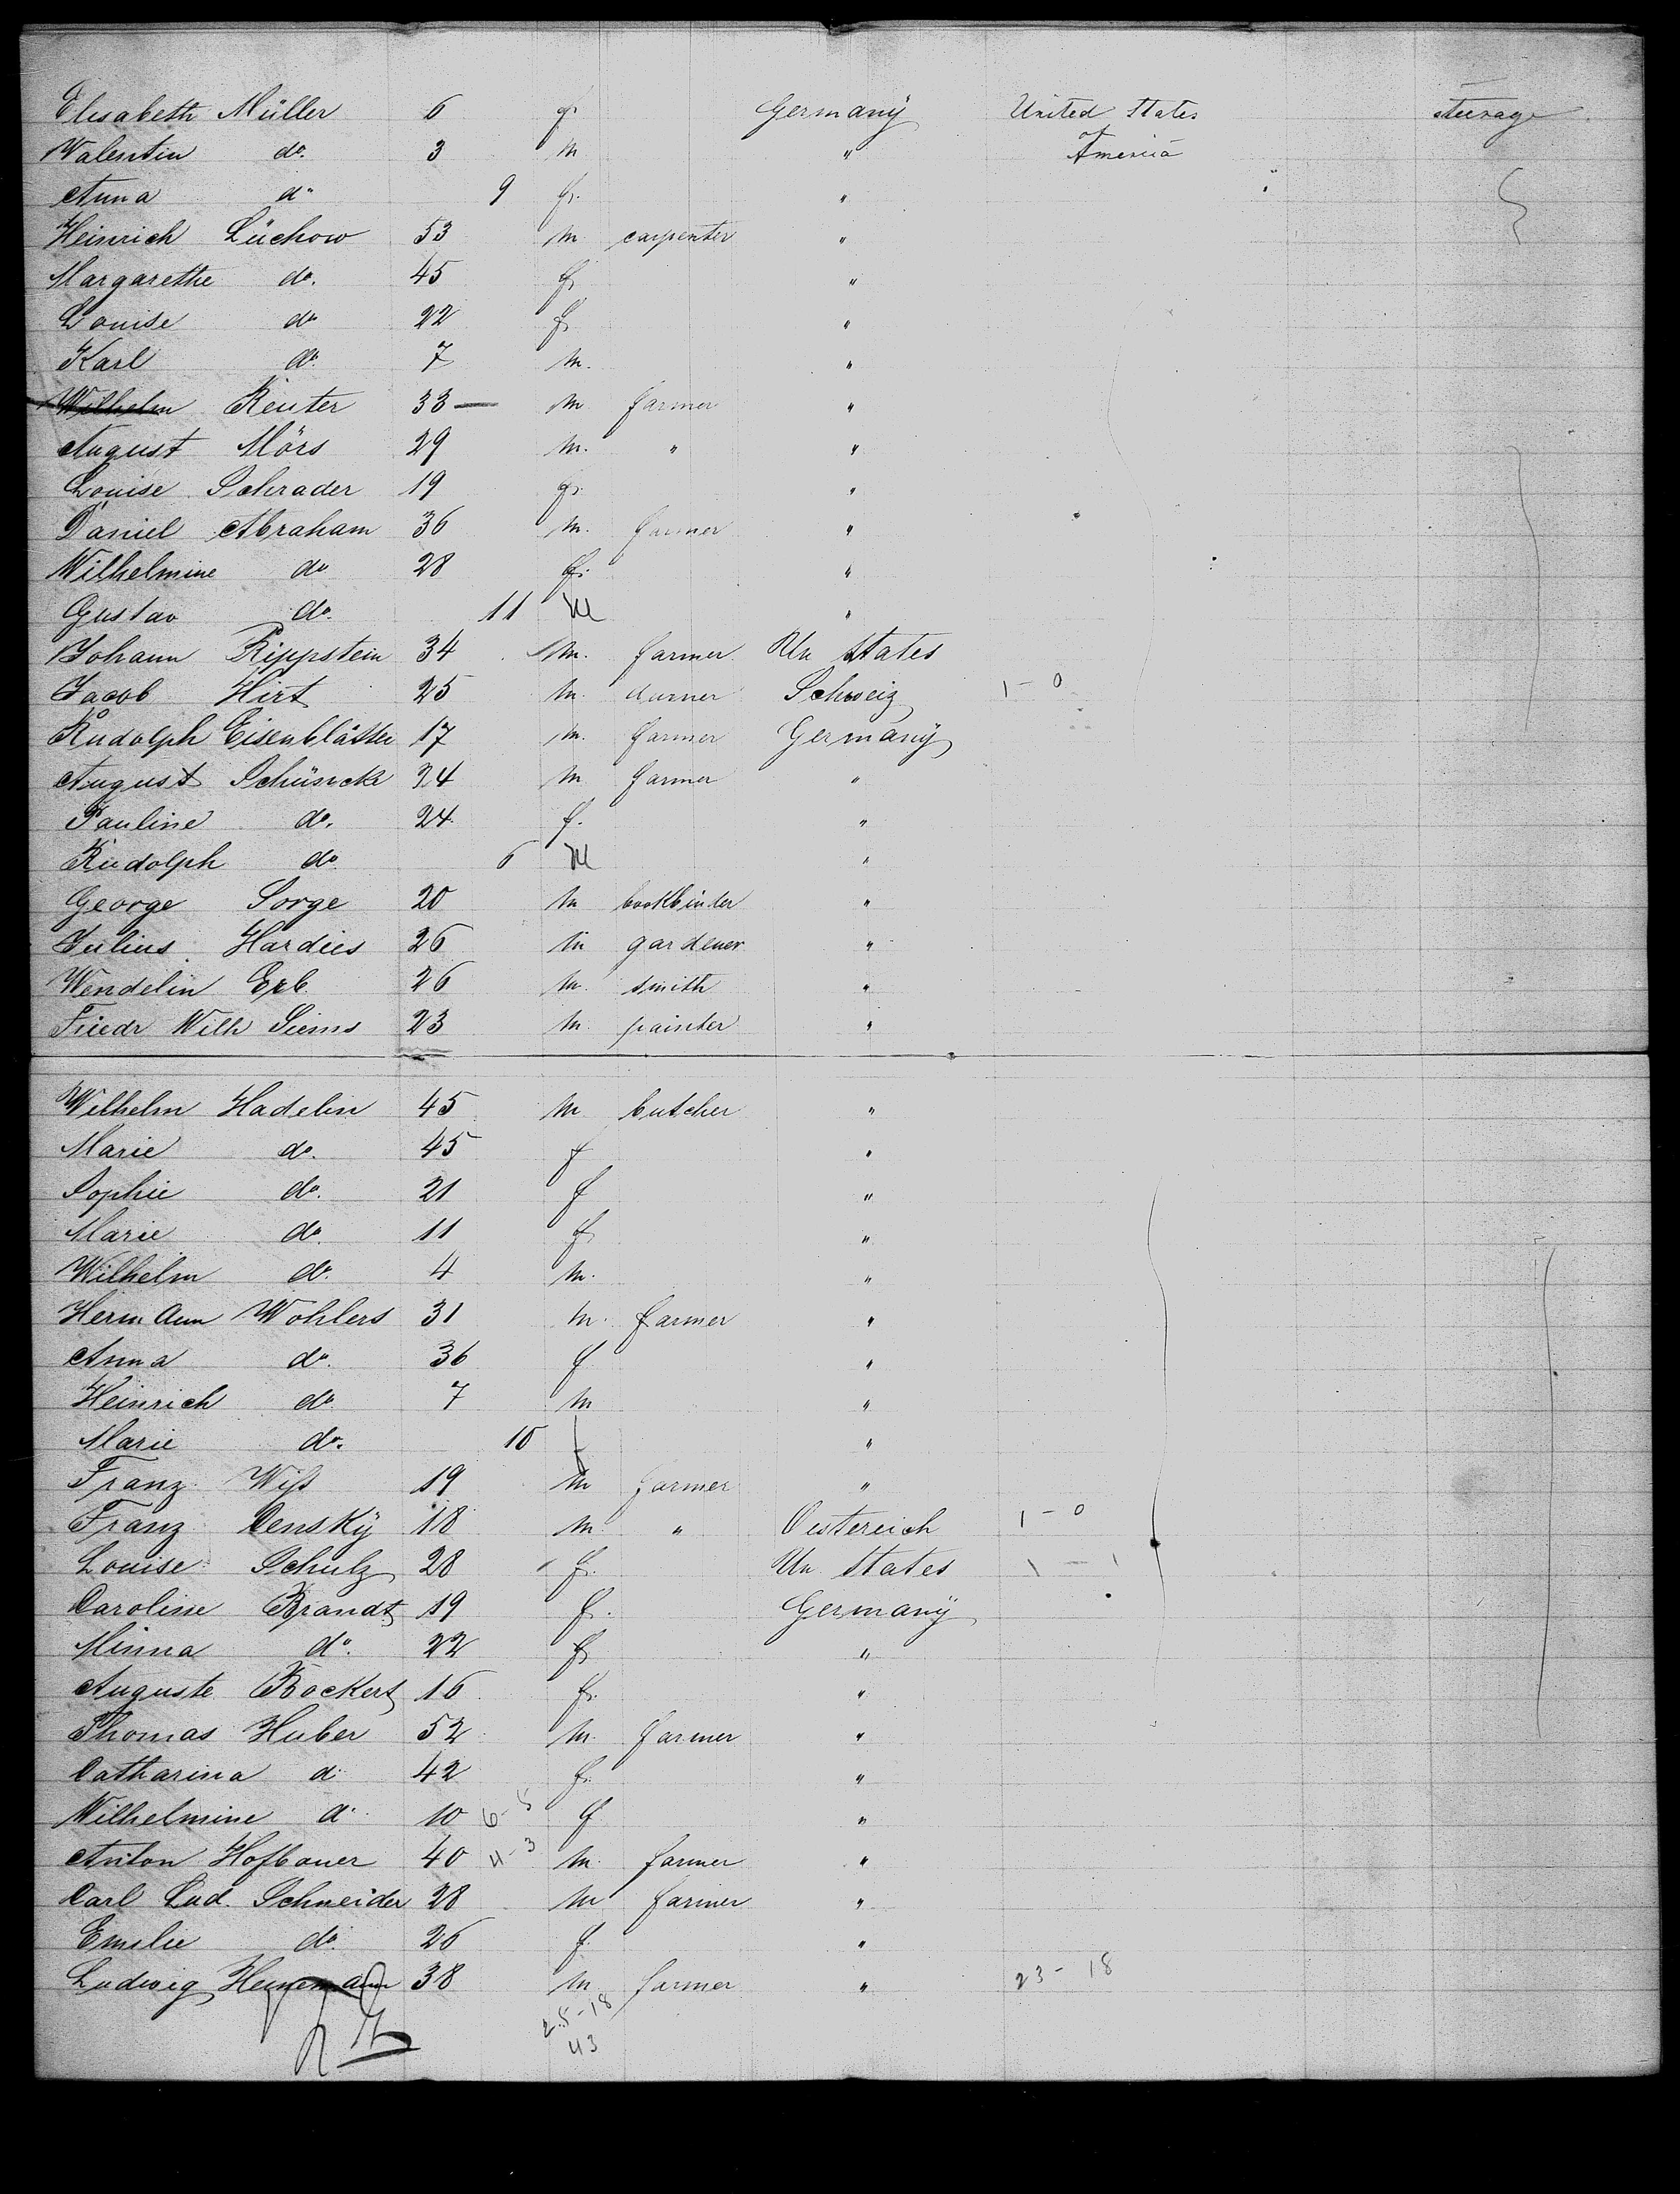 Elisabeth Müller 6 f. Germany United States steerage
Valentin do. 3 m " of America
Anna do 9 f. "
Heinrich Lüchow 53 m carpenter "
Margarethe do. 45 f "
Louise do 22 f. "
Karl do. 7 m. "
Wilhelm Reuter 33 — m farmer "
August Mörs 29 m. " "
Louise Schrader 19 f. "
Daniel Abraham 36 m. farmer "
Wilhelmine do 28 f. "
Gustav do. 11 M "
Johann Rippstein 34 m. farmer Un States
Jacob Hirt 25 m. Schweiz 1 - 0
Rudolph Eisenblätter 17 m. farmer Germany
August 24 m farmer "
Pauline do. 24 f. "
Rudolph do 6 M "
George Sorge 20 m bookbinder "
Julius Hardies 26 m gardener "
Wendelin Erb 26 m. smith "
Friedr Wilh Siems 23 m. painter "
Wilhelm Hadelin 45 m butcher "
Marie do. 45 f "
Sophie do. 21 f "
Marie do. 11 f "
Wilhelm do. 4 m. "
Hermann Wohlers 31 m. farmer "
Anna do. 36 f "
Heinrich do. 7 m "
Marie do. 10 f "
Franz Wiß 19 m farmer "
Franz Censky 18 m. " Oestereich 1 - 0
Louise Schulz 28 f. Un States 1 - 1
Caroline Brandt 19 f. Germany
Minna do. 22 f "
Auguste Bockert 16 f. "
Thomas Huber 52 m. farmer "
Catharina do 42 f. "
Wilhelmine do. 10 6-5 f "
Anton Hofbauer 40 4-3 m. farmer "
Carl Lud. Schneider 28 m farmer "
Emilie do. 26 f. "
Ludwig Heinemann 38 m farmer " 23 - 18
25-18
43